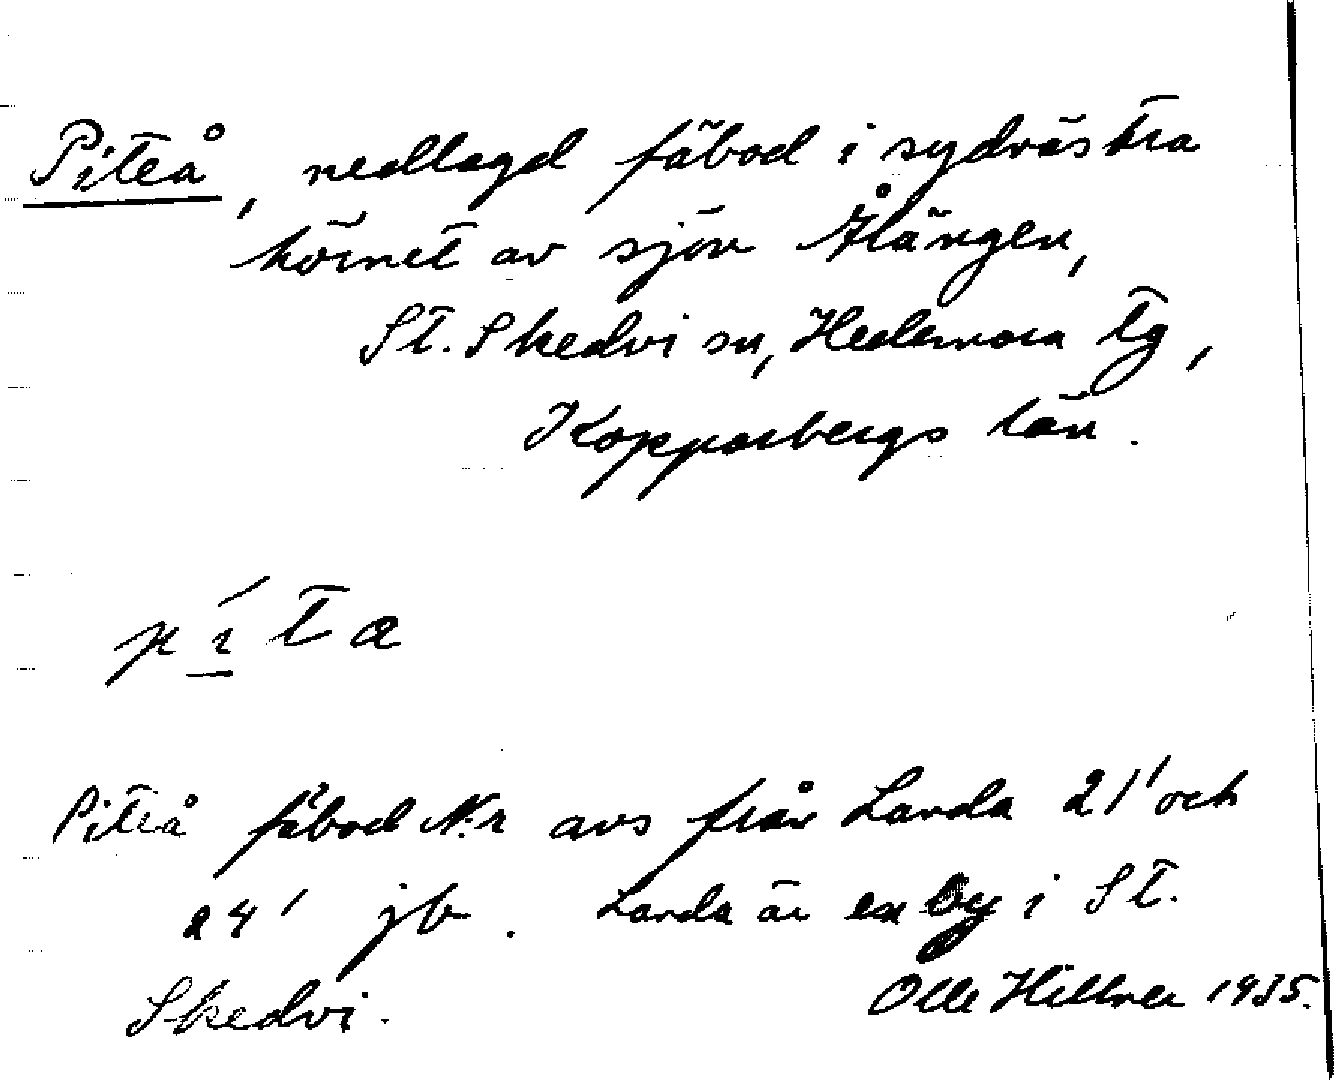 Piteå, nedlagd fäbod i sydvästra
hörnet av sjön Ålängen,
St. Skedvi sn, Hedemora tg,
Kopparbergs län.
píta
Piteå fäbod Nr avs från Landa 21' och
24' jb. Landa är en by i St.
Skedvi.
Olle Hillner 1935.